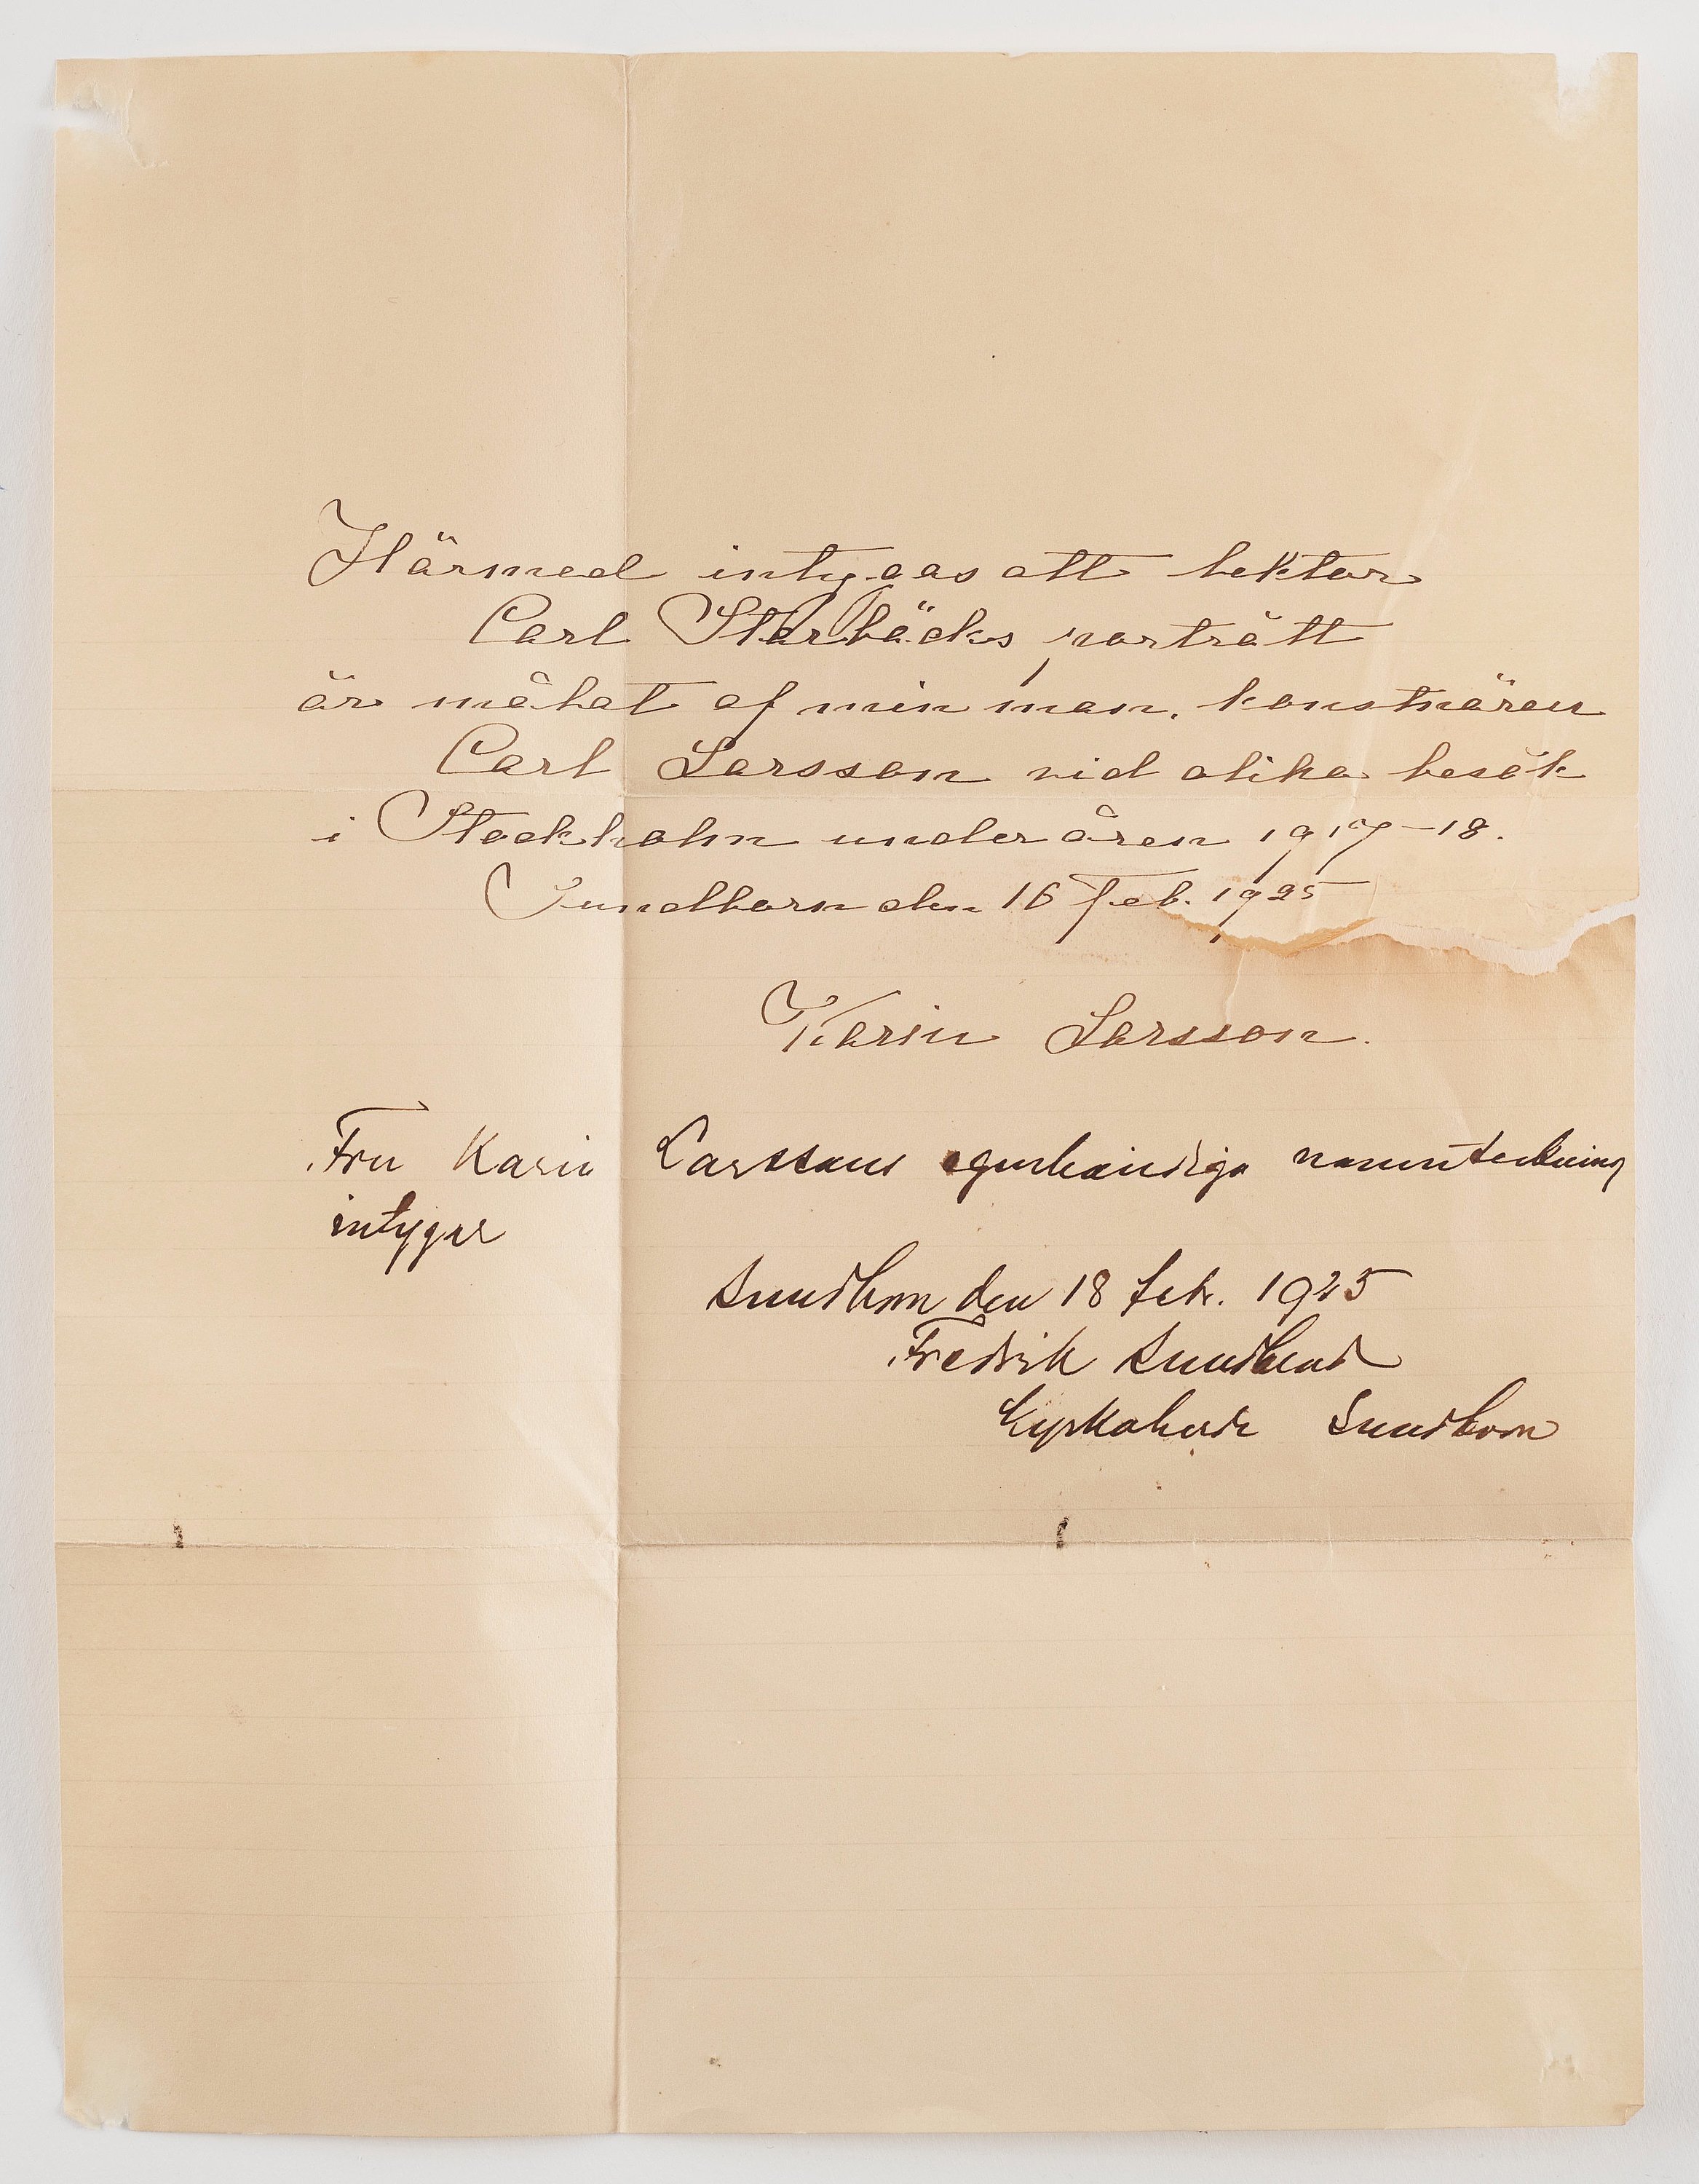 Härmed intygas att lektor
Carl Starbäcks porträtt
är målat af min man, konstnären
Carl Larsson vid olika besök
i Stockholm under åren 1917-18.
Sundborn den 16 Feb. 1925
Karin Larsson.
Fru Karin Larssons egenhändiga namnteckning
intygar
Sundborn den 18 febr. 1925
Fredrik Sundlund
Kyrkoherde Sundborn